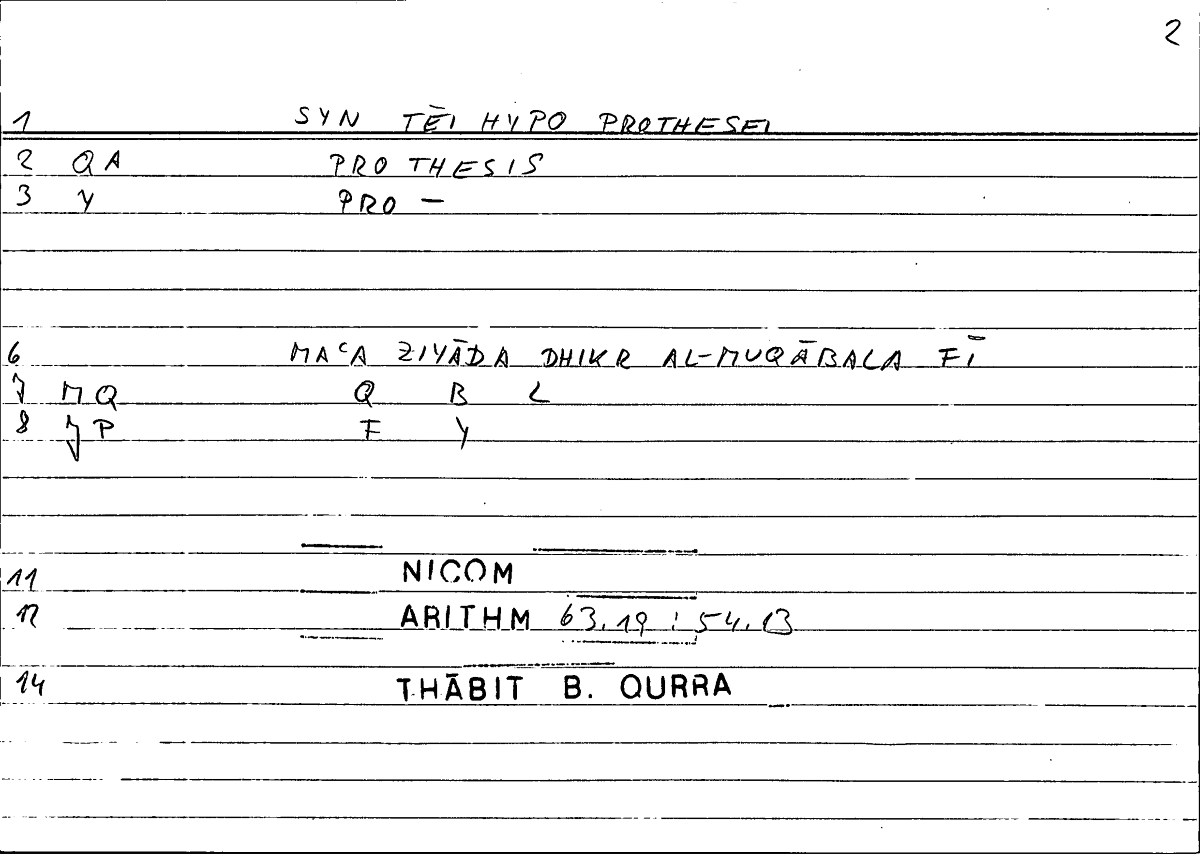 2
1 SYN TĒI HYPO PROTHESEI
2 QA PROTHESIS
3 Y PRO –
6 MAᶜA ZIYĀDA DHIKR AL-MUQĀBALA FĪ
7 MQ Q B L
8 JP F Y
11 NICOM
12 ARITHM 63.19 : 54.13
14 THĀBIT B. QURRA